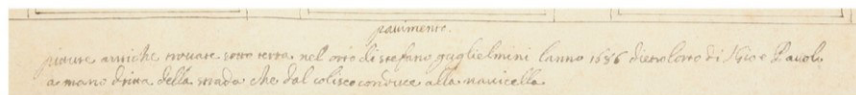 pavimento.
piture antiche trovate sotto terra nel orto di stefano guglielmini lanno 1686 dietro lorto di S Gio e Pauolo
a mano drita della strada che dal coliseo conduce alla navicella